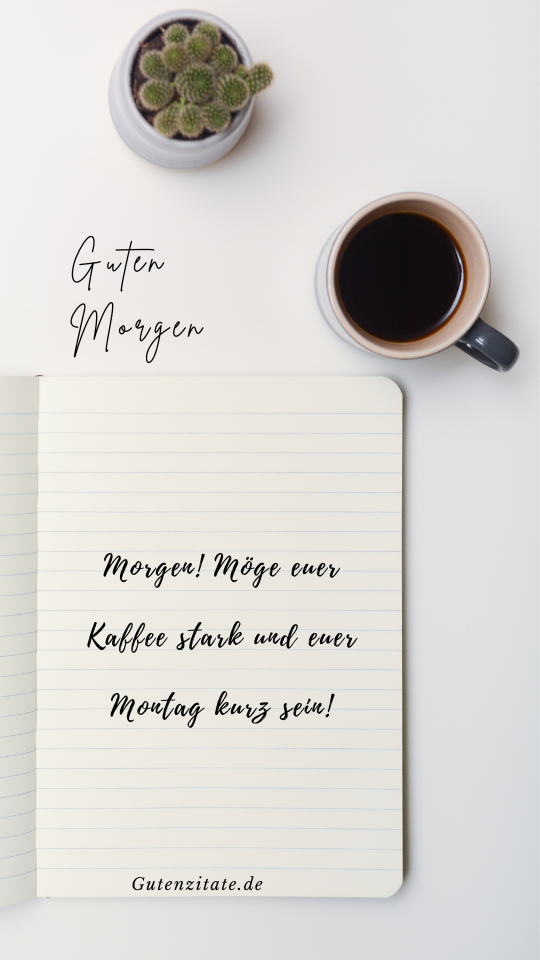 Guten
Morgen
Morgen! Möge euer
Kaffee stark und euer
Montag kurz sein!
Gutenzitate.de